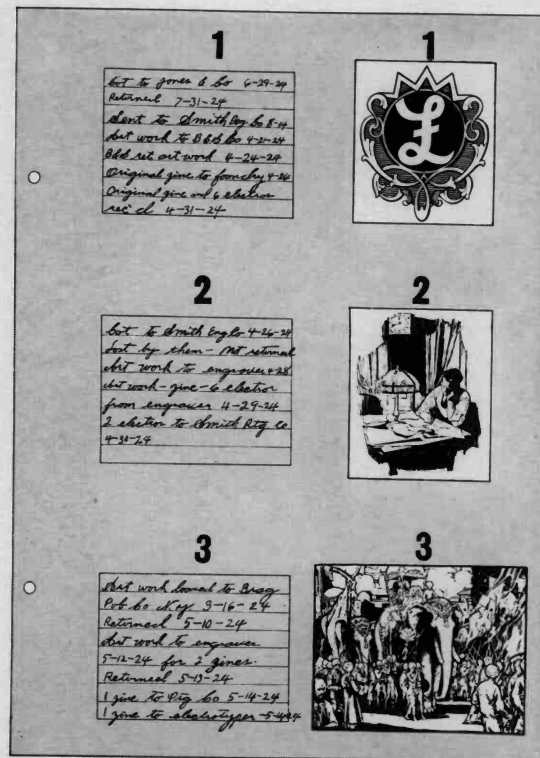 1
1
Cut to Jones & Co 6-29-24
Returned 7-31-24
Sent to Smith Co 8-14
Art work to B&B Co 4-21-24
B&B ret art work 4-24-24
Original zinc to foundry 4-24
Original zinc and 6 electros
rec'd 4-31-24
£
2
2
Cut to Smith Eng Co 4-26-24
Lost by them - Not returned
Art work to engraver 4-28
Art work - zinc - 6 electros
from engraver 4-29-24
2 electros to Smith Ptg Co
4-30-24
3
3
Art work loaned to
Pub Co N.Y. 3-16-24
Returned 5-10-24
Art work to engraver
5-12-24 for 2 zincs.
Returned 5-13-24
1 zinc to Ptg Co 5-14-24
1 zinc to electrotyper